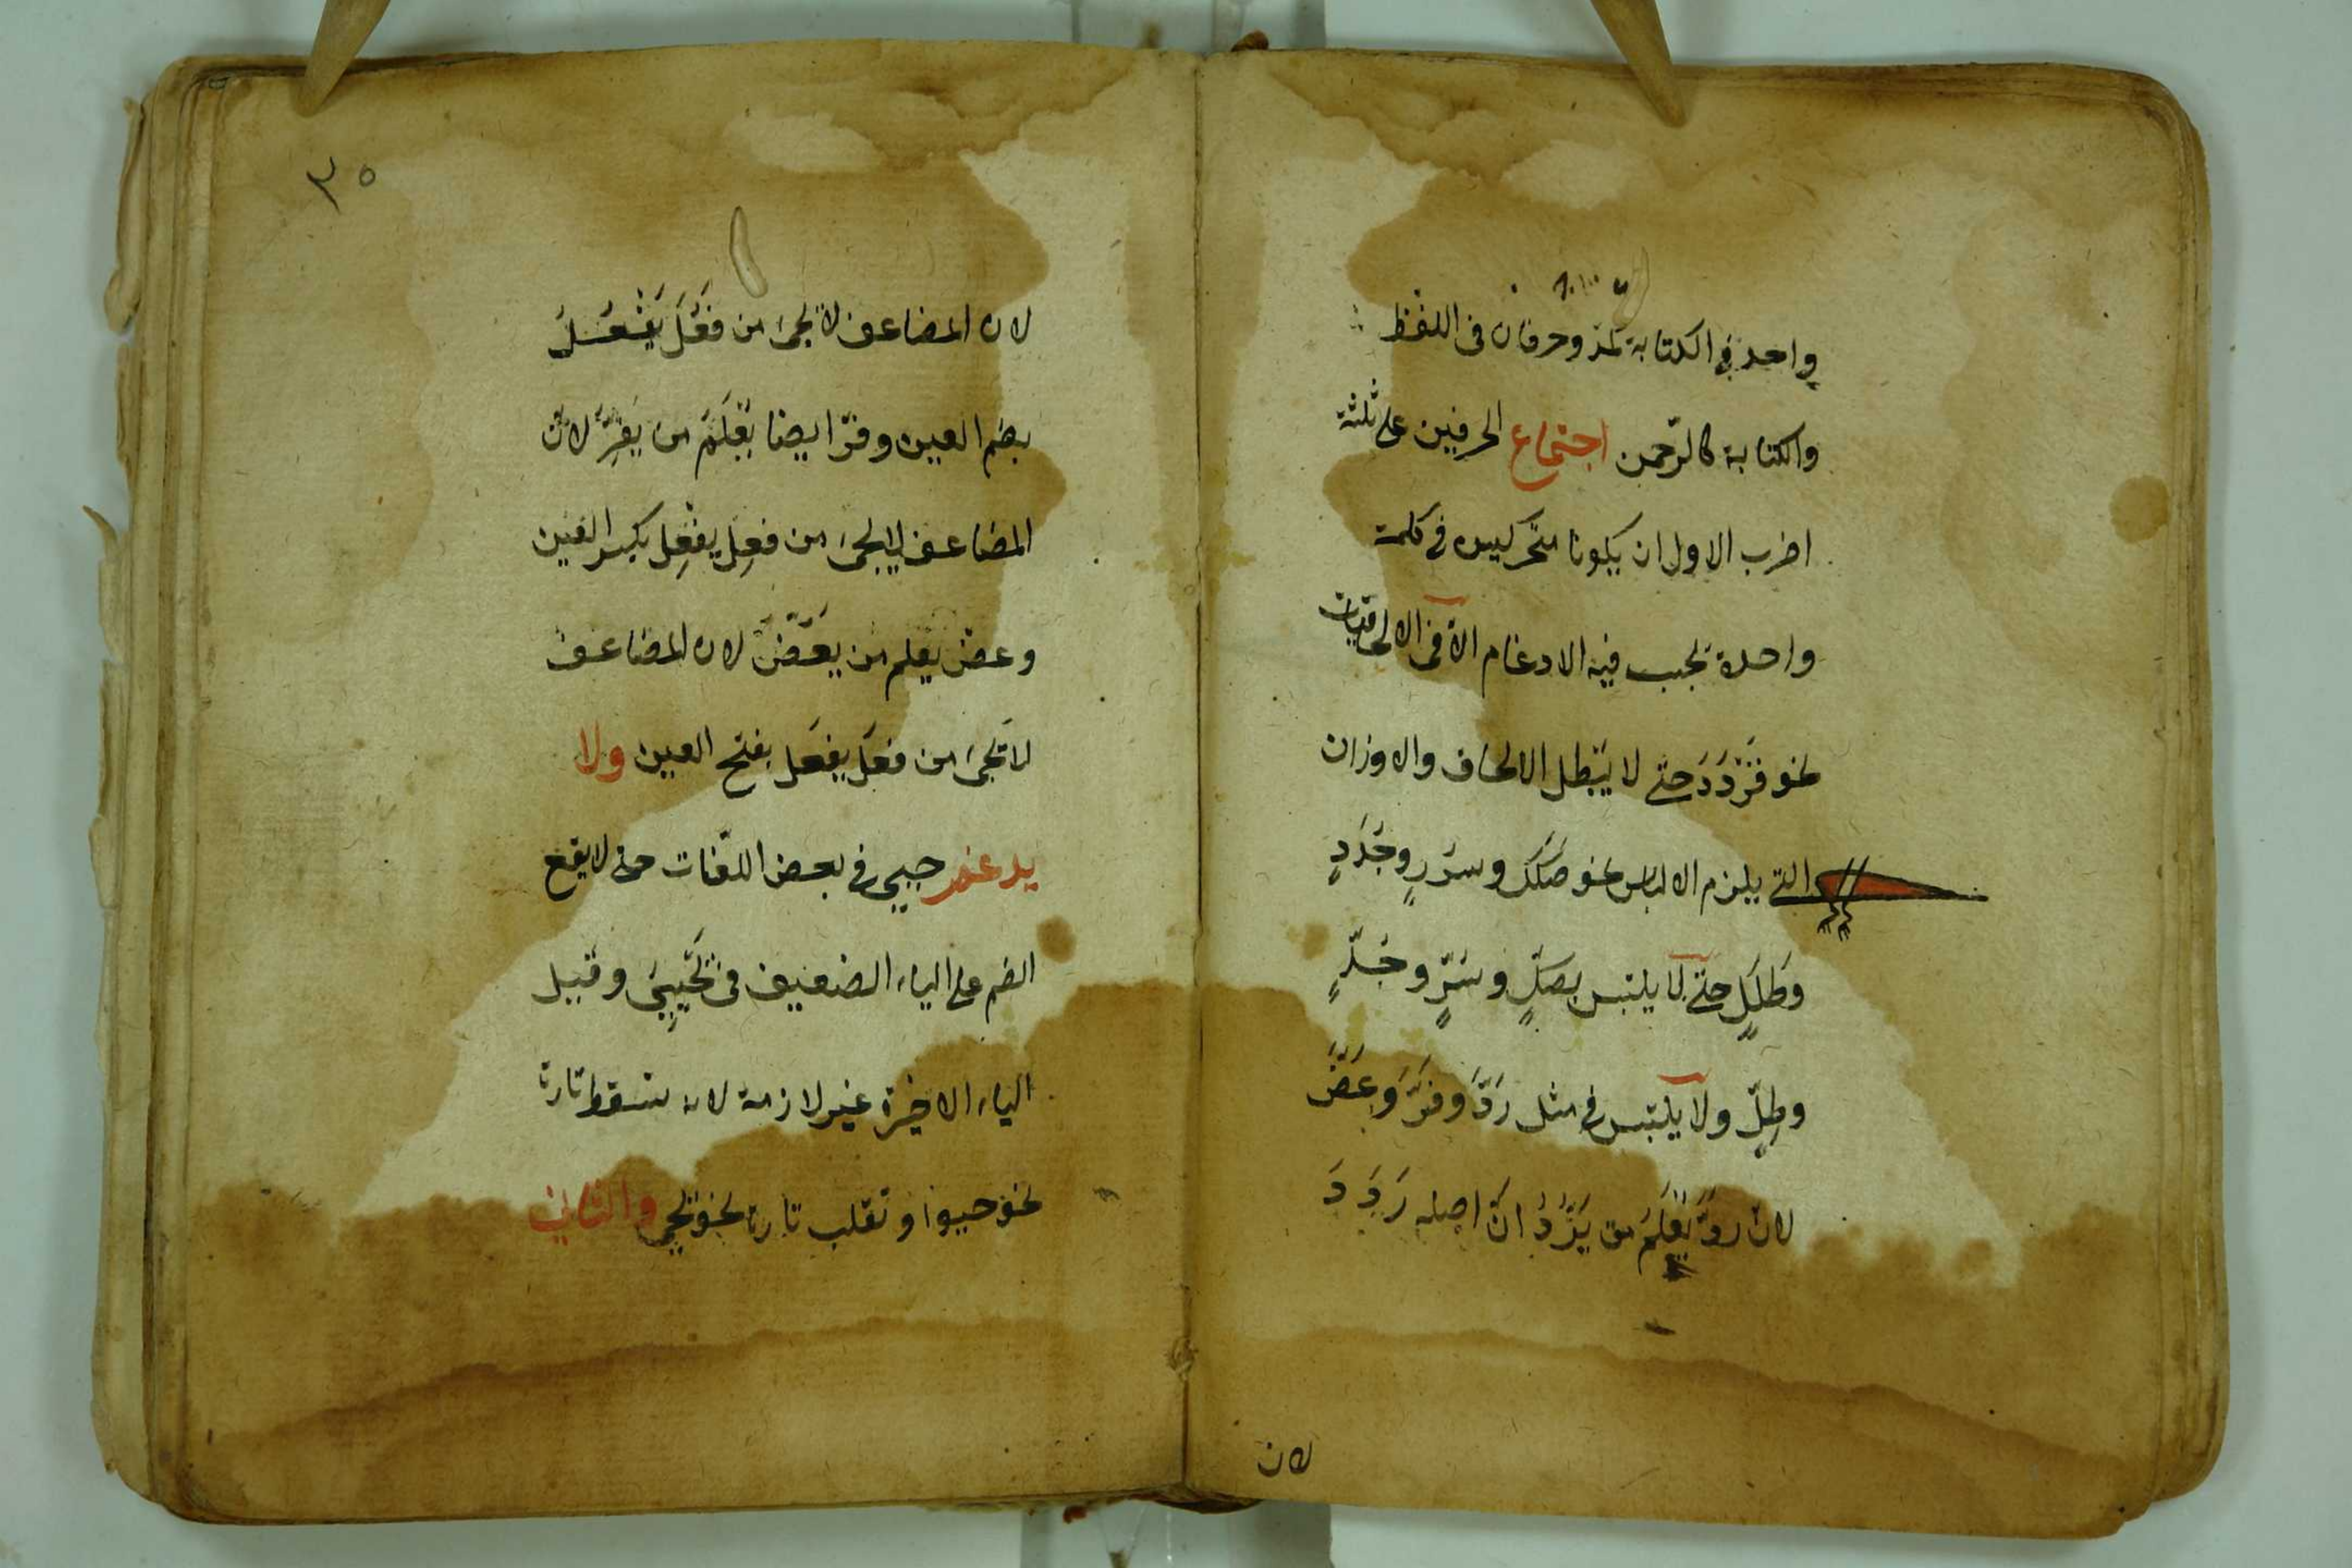 واحد في الكتابة كمدّ وحرفان فى اللفظ
والكتابة كالرّحمن اجتماع الحرفين على ثلثة
اضرب الاول ان يكونا متحركين فى كلمة
واحدة يجب فيه الادغام الّا فى الالحاقيات
نحو قَرْدَدَ حتى لا يَبْطل الالحاق والاوزان
التى يلزم الالباس نحو صَكَك وسُرُرٍ وجُدَدٍ
وطَلَلٍ حتّى لا يلتبس بصكٍّ وسُرٍّ وجُدٍّ
وطلٍّ ولا يلتبس فى مثل رَدَّ وفرَّ وعَضَّ
لانّ ردّ يُعْلَمُ من يَرُدُّ انّ اصله رَدَدَ
لان
٣٥
لان المضاعف لا يجىء من فَعُلَ يَفْعُلُ
بضم العين وفرّ ايضا يُعْلَمُ من يَفِرّ لانّ
المضاعف لا يجىء من فعِل يفعِل بكسر العين
وعضّ يعلم من يَعَضّ لان المضاعف
لا يجىء من فعَل يفعَل بفتح العين ولا
يدغم حيى فى بعض اللغات حتى لا يقع
الضم على الياء الضعيف فى يَحْيِىُ وقيل
الياء الاخيرة غير لازمة لانه تسقط تارة
نحو حيوا و تقلب تارة نحو يحيى والثانى